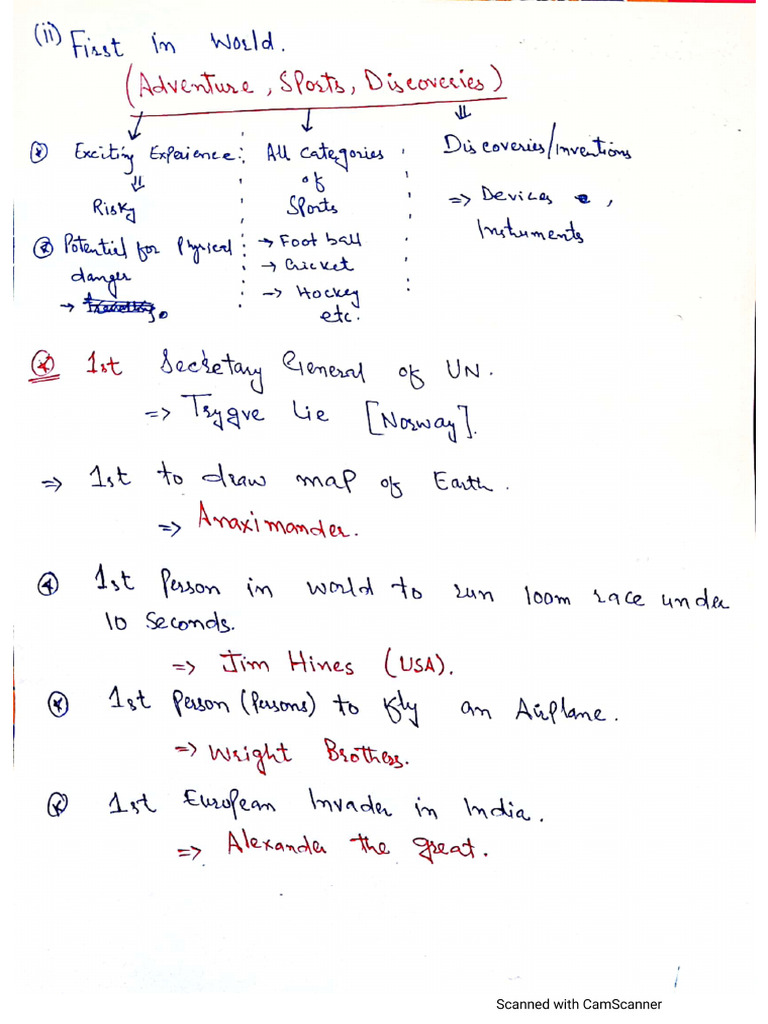 (ii) First in World.
(Adventure, Sports, Discoveries)
Exciting Expeience:
Risky
Potential for Physical
danger
→
All Categories
of
Sports
→ Foot ball
→ Cricket
→ Hockey
etc.
Discoveries/Inventions
=> Devices ,
Instuments
1st Secretary General of UN.
=> Trygve Lie [Norway].
=> 1st to draw map of Earth.
=> Anaximander.
1st Person in world to run 100m race under
10 Seconds.
=> Jim Hines (USA).
1st Person (Persons) to fly an Airplane.
=> Wright Brothers.
1st European Invader in India.
=> Alexander the great.
Scanned with CamScanner